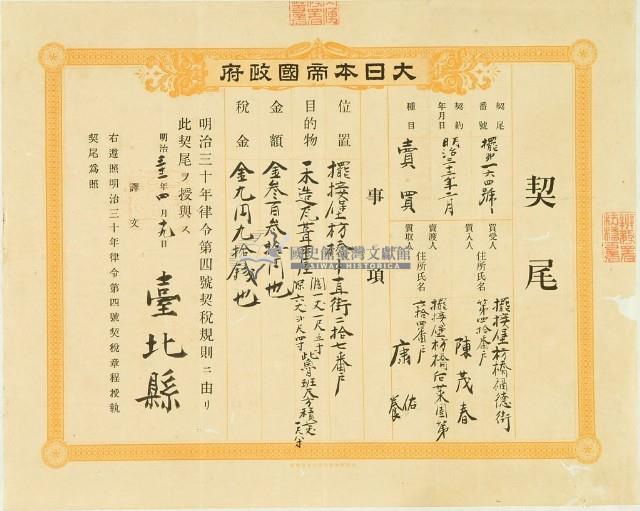 大日本帝國政府
契尾
契尾番號
擺接一六四號
契約年月日
明治三十三年二月
種目
賣買
買受人
買入人
住所氏名
擺接堡枋橋福德街
第四拾番戶
陳茂春
賣渡人
質取人
住所氏名
擺接堡枋橋后菜園第
六拾四番戶
康佑養
事項
位置
擺接堡枋橋
直街二拾七番戶
目的物
一木造瓦葺
金額
金叄百叄拾円也
稅金
金九円九拾錢也
明治三十年律令第四號契稅規則ニ由リ
此契尾ヲ授與ス
明治三十三年四月十九日
臺北縣
譯文
右遵照明治三十年律令第四號契稅章程授執
契尾為照
國史館臺灣文獻館
TAIWAN HISTORICA